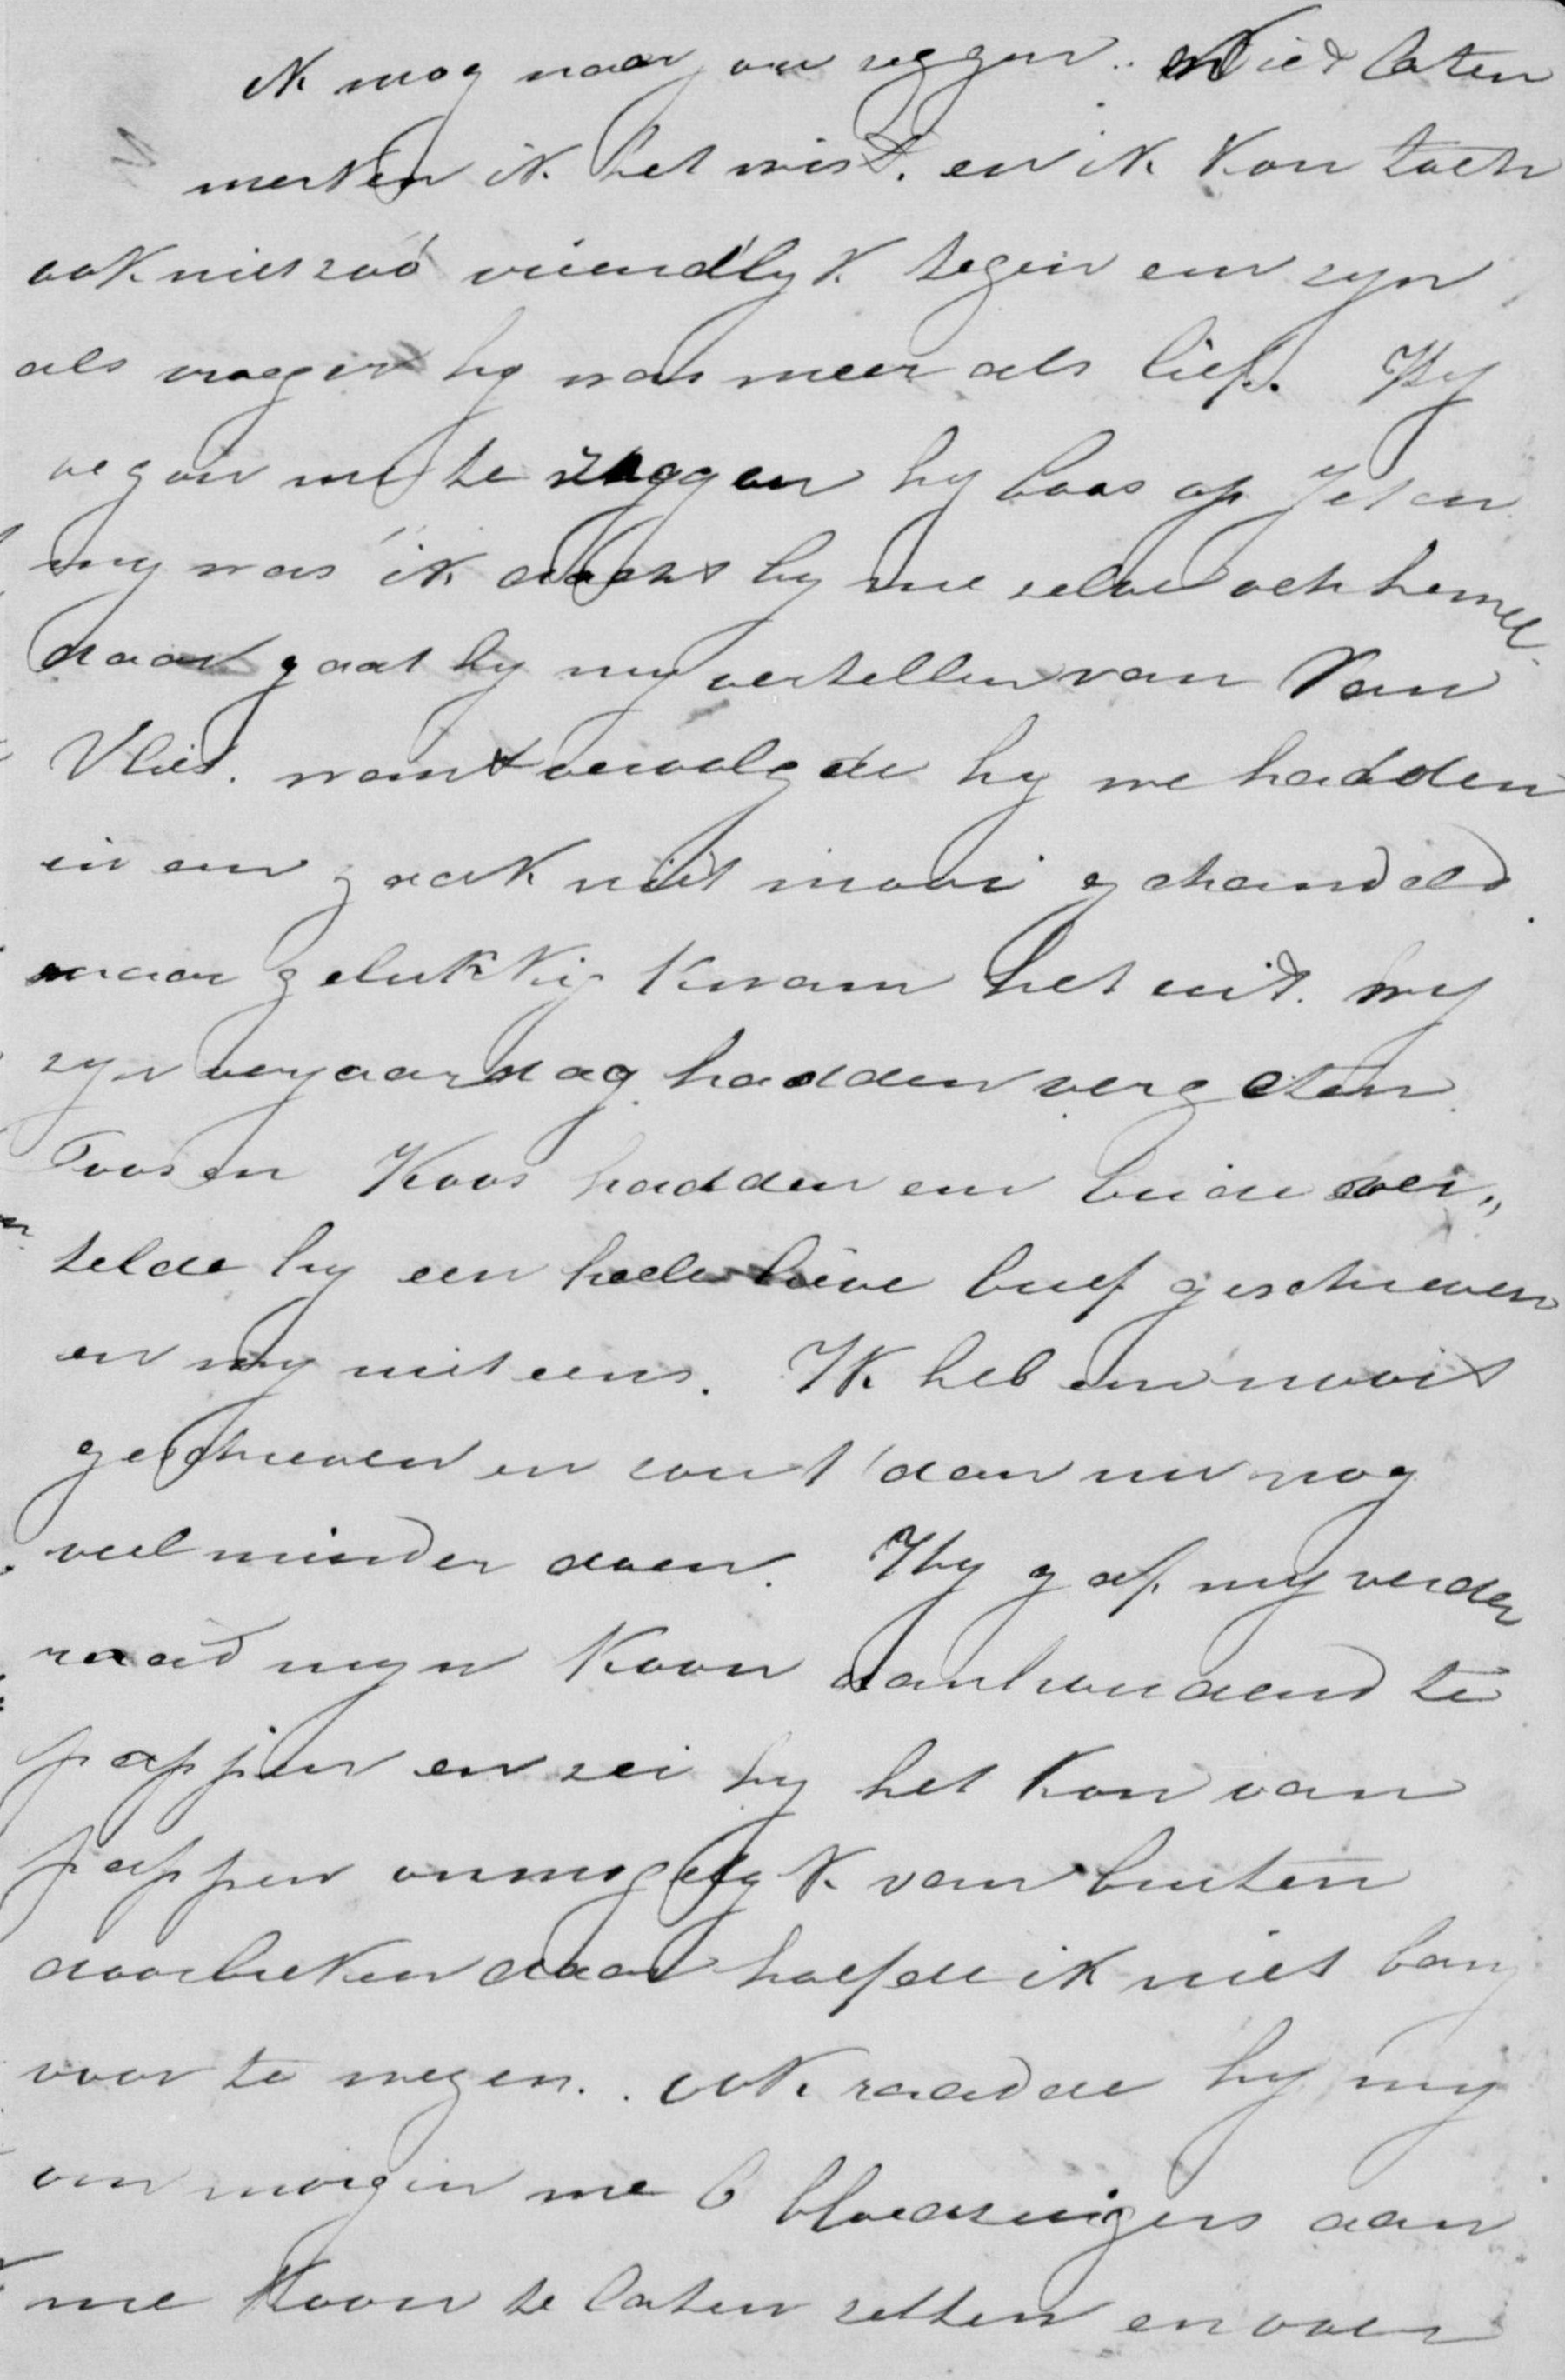 ik mog naar ou zeggen. Niet laten
merken ik het wist. en ik kon toch
ook niet zoó vriendlyk tegen em zyn
als vroeger hy was meer als lief. Hy
begon me te zeggen hy boos op Jet en
my was ik dacht by me zelve och hemel
daar gaat hy my vertellen van Van
Vliet. want vervolgde hy we hadden
in een zaak niet mooi gehandeld
maar gelukkig kwam het uit. wy
zyn verjaardag hadden vergeten
Toos en Koos hadden em beide ver„
telde hy een heele lieve brief geschreven
en wy niet eens. Ik heb em nooit
geschreven en zou 't dan nu nog
veel minder doen. Hy gaf my verder
raad myn Koon aanhoudend te
pappen en zei hy het kon van
pappen onmogelyk van buiten
doorbreken daar hoefde ik niet bang
voor te wezen. ook raadde hy my
om morgen me 6 bloedzuigers aan
me Koon te laten zetten en voor